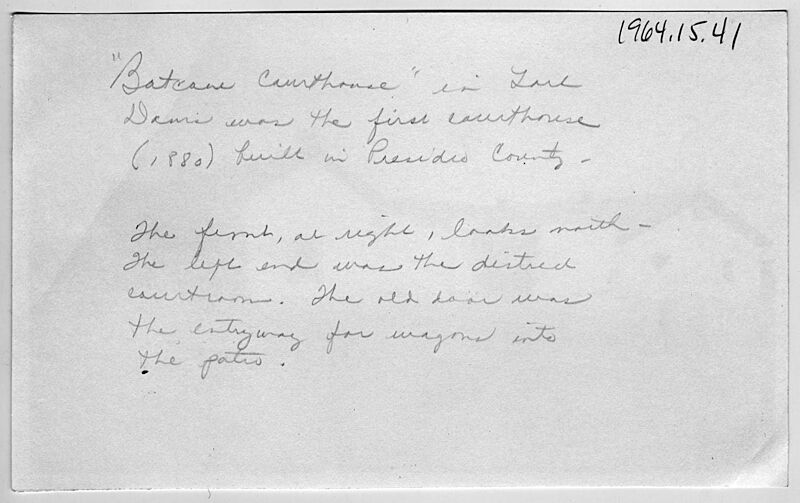 1964.15.41
"Batcave Courthouse" in Fort
Davis was the first courthouse
(1880) built in Presidio County -
The front, at right, looks north -
The left end was the district
courtroom. The old door was
the entryway for wagons into
the patio.